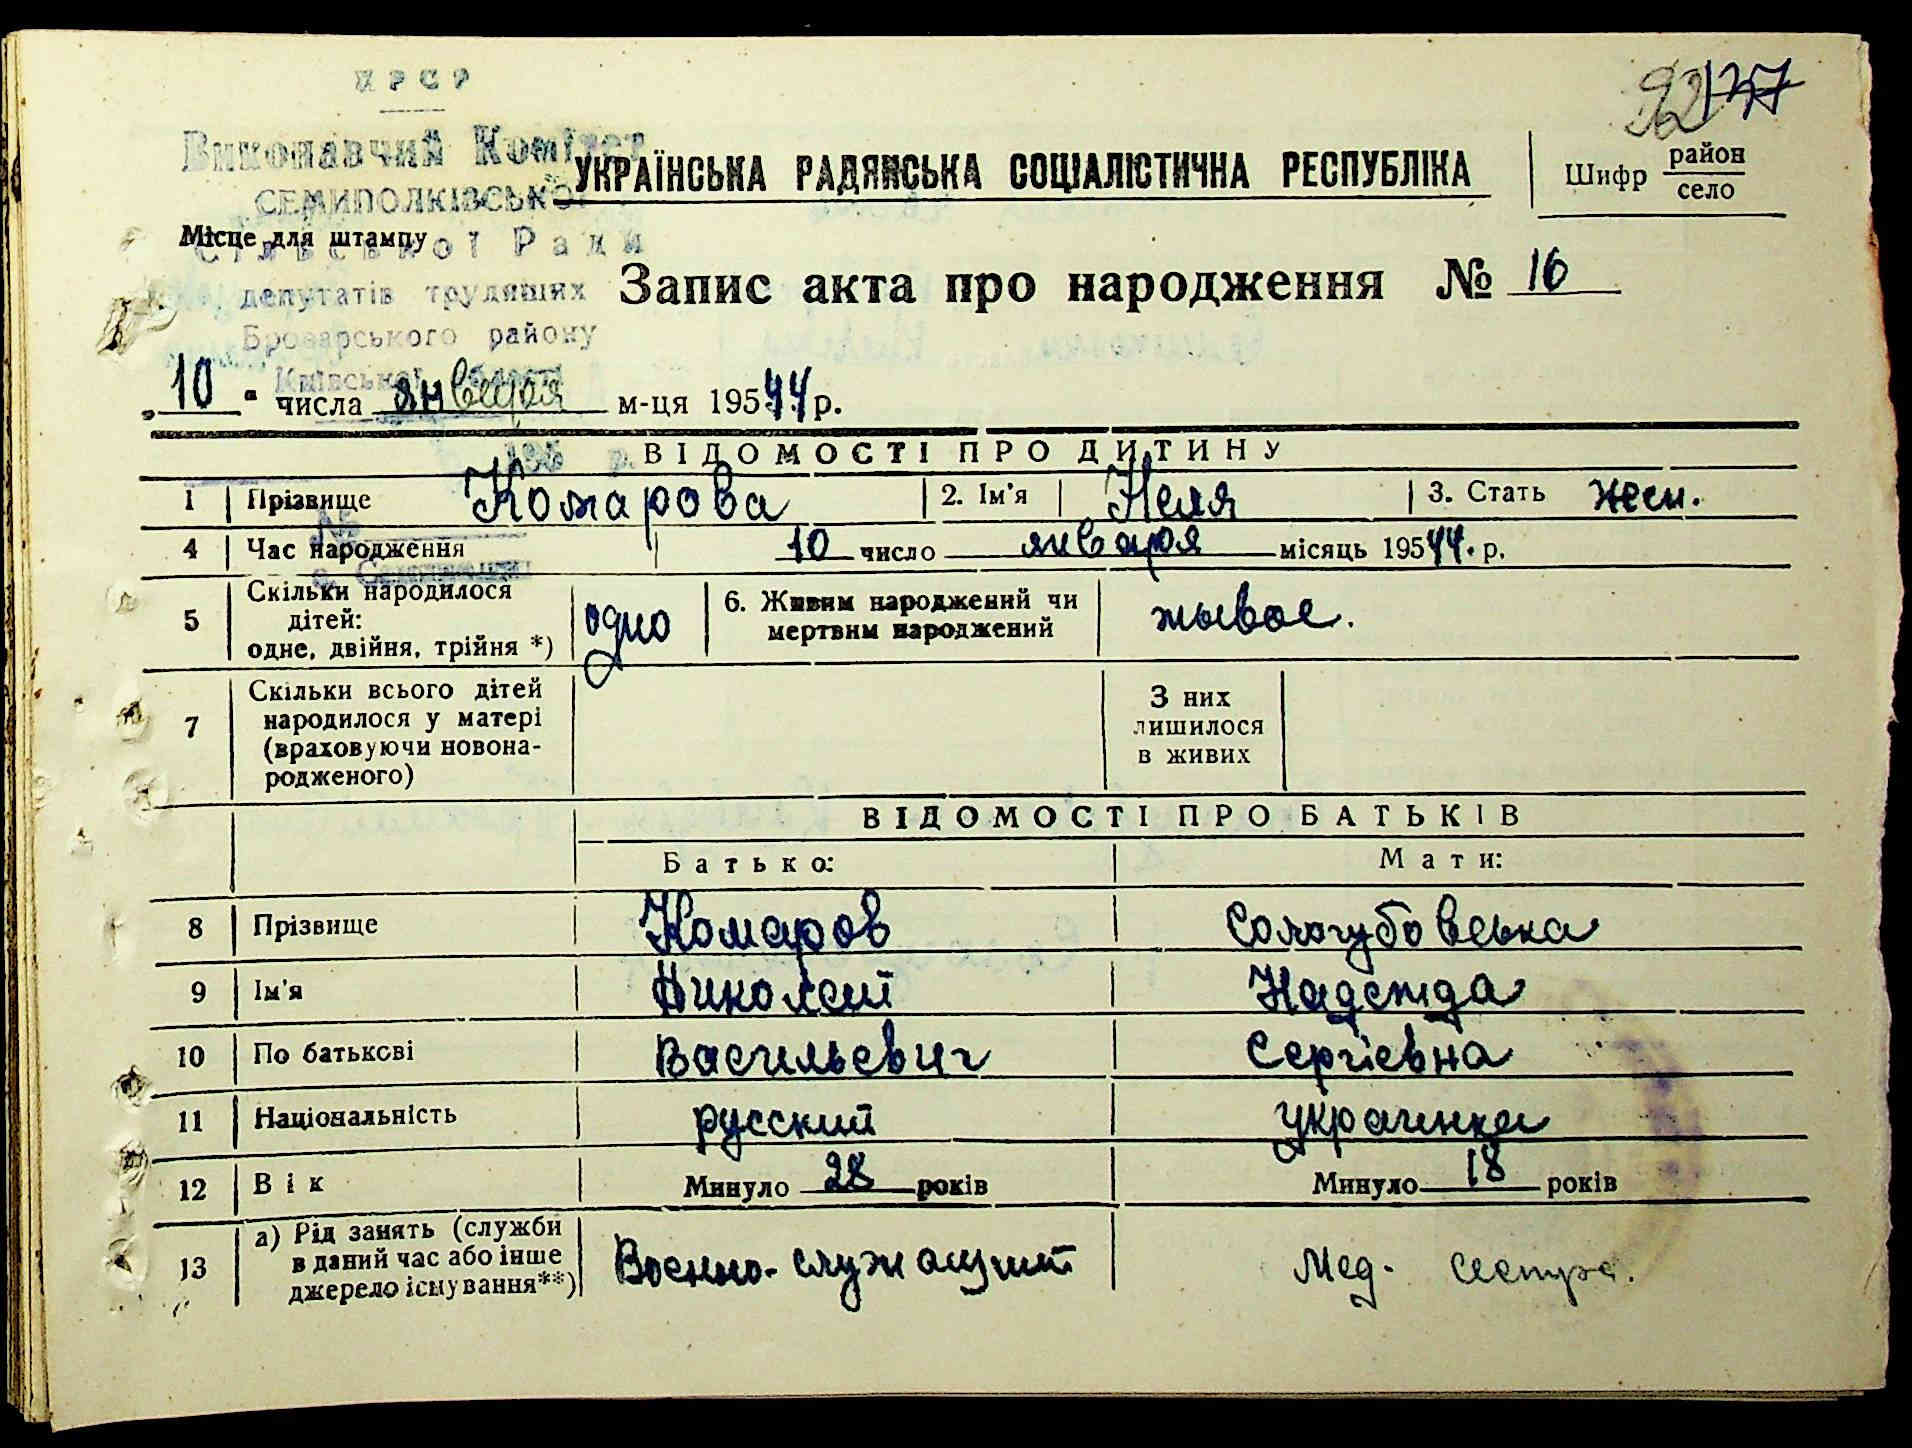 УРСР
Виконавчий Комітет
СЕМИПОЛКІВСЬКОЇ
Сільської Ради
депутатів трудящих
Броварського району
Київської області
195 р.
№
с. Семиполки
Місце для штампу
92 137
УКРАЇНСЬКА РАДЯНСЬКА СОЦІАЛІСТИЧНА РЕСПУБЛІКА
Шифр район
село
Запис акта про народження № 16
„10“ числа января м-ця 195 44 р.
ВІДОМОСТІ ПРО ДИТИНУ
1 Прізвище Комарова 2. Ім'я Неля 3. Стать жен.
4 Час народження 10 число января місяць 195 44. р.
5 Скільки народилося
дітей:
одне, двійня, трійня *) одно 6. Живим народжений чи
мертвим народжений жывое.
7 Скільки всього дітей
народилося у матері
(враховуючи новона-
родженого)
З них
лишилося
в живих
ВІДОМОСТІ ПРО БАТЬКІВ
Батько: Мати:
8 Прізвище Комаров Сологубовська
9 Ім'я Николай Надежда
10 По батькові Васильевич Сергієвна
11 Національність русский украинка
12 Вік Минуло 28 років Минуло 18 років
13 а) Рід занять (служби
в даний час або інше
джерело існування**) Военно-служащий Мед. сестра.